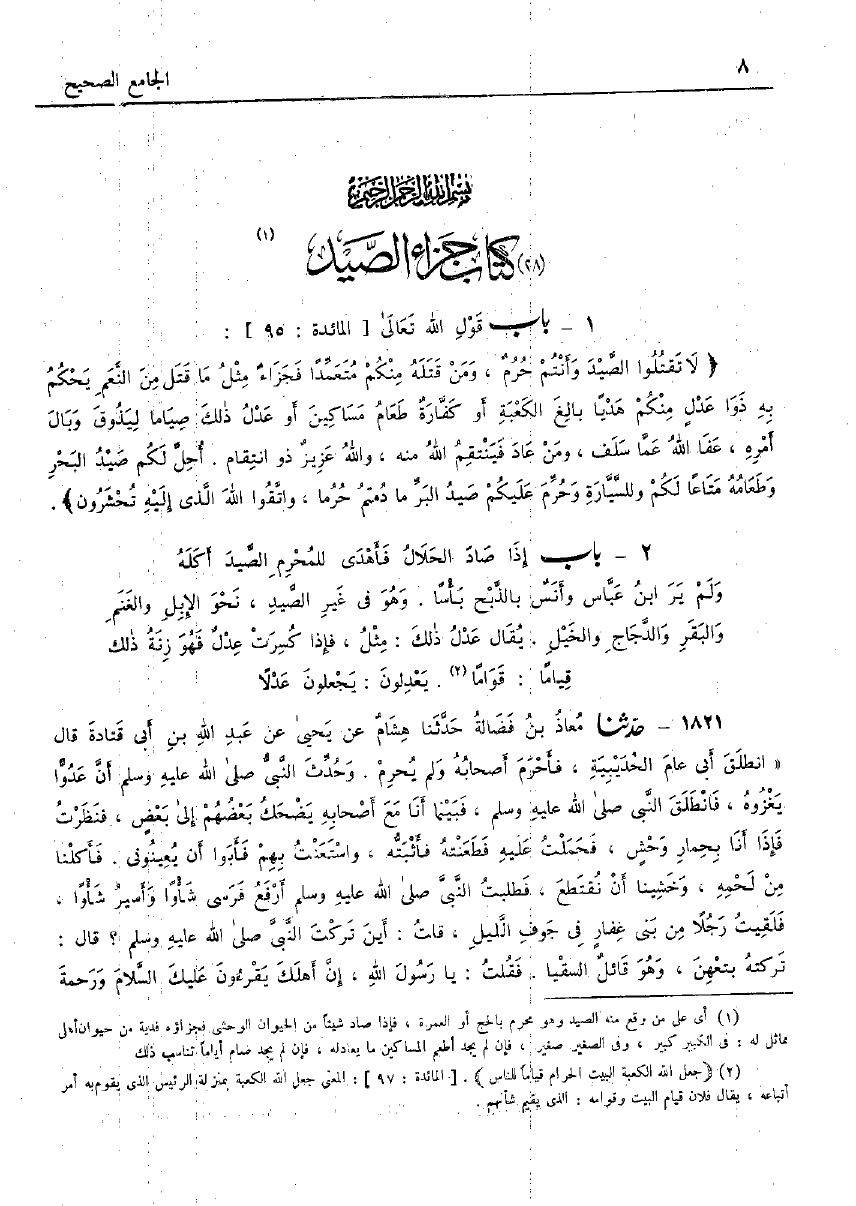 ٨
الجامع الصحيح
بسم الله الرحمن الرحيم
(٢٨) كتاب جزاء الصيد (١)
١ - باب قَوْلِ الله تَعَالَىٰ [ المائدة : ٩٥ ] :
﴿ لَا تَقتُلُوا الصَّيْدَ وَأَنْتُمْ حُرُمٌ ، وَمَنْ قَتَلَهُ مِنْكُمْ مُتَعَمِّدًا فَجَزَاءٌ مِثْلُ مَا قَتَلَ مِنَ النَّعَمِ يَحْكُمُ
بِهِ ذَوَا عَدْلٍ مِنْكُمْ هَدْيًا بالِغَ الكَعْبَةِ أو كَفَّارَةٌ طَعَامُ مَسَاكِينَ أو عَدْلُ ذٰلكَ صِيَاما لِيَذُوقَ وَبَالَ
أَمْرِهِ ، عَفَا اللهُ عَمَّا سَلَف ، ومَنْ عَادَ فَيَنْتَقِمُ اللهُ منه ، واللهُ عَزِيزٌ ذو انتِقام . أُحِلَّ لَكُم صَيْدُ البَحْرِ
وَطَعَامُهُ مَتَاعًا لَكُمْ وللسَّيَّارَةِ وَحُرِّمَ عَلَيكُمْ صَيدُ البَرِّ ما دُمْتمْ حُرُما ، واتَّقُوا اللهَ الَّذى إِلَيْهِ تُحْشَرُون﴾ .
٢ - باب إِذَا صَادَ الحَلَالُ فَأَهْدَى للمُحْرِمِ الصَّيدَ أَكَلَهُ
وَلَمْ يَرَ ابنُ عَبَّاس وأَنَسٌ بالذَّبْحِ بَأْسًا . وَهُوَ فى غَيرِ الصَّيدِ ، نَحْوَ الإِبِلِ والغَنَمِ
والبَقَرِ وَالدَّجَاجِ والخَيْلِ . يُقَال عَدْلُ ذٰلكَ : مِثْلُ ، فإِذا كُسِرَتْ عِدْلٌ فَهُوَ زِنَةُ ذٰلك
قِيامًا : قَوَامًا (٢) . يَعْدِلونَ : يَجْعلونَ عَدْلًا
١٨٢١ - حَدَّثنا مُعاذُ بنُ فَضَالةَ حَدَّثَنا هِشَامٌ عن يَحيىٰ عن عَبدِ اللهِ بنِ أَبى قَتادةَ قال
« انطلَقَ أَبى عامَ الحُدَيْبِيَةِ ، فأَحْرَمَ أَصحابُهُ ولَم يُحرِمْ . وَحُدِّثَ النَّبىُّ صلى الله عليهِ وسلم أَنَّ عَدُوًّا
يَغْزُوهُ ، فَانْطَلَقَ النَّبى صلى الله عليهِ وسلم ، فَبَيْنَما أَنَا مَعَ أَصْحَابِهِ يَضْحَكُ بَعْضُهُمْ إِلىٰ بَعْضٍ ، فنَظَرْتُ
فإِذَا أَنَا بِحِمارِ وَحْشٍ ، فحَمَلْتُ عَلَيهِ فَطَعَنْتهُ فأَثْبَتُّه ، واستَعَنْتُ بِهِمْ فَأَبَوا أَن يُعِينُونى . فَأَكلْنا
مِنْ لَحْمِهِ ، وَخَشِينا أَنْ نُقْتَطَعَ ، فَطلبتُ النَّبىَّ صلى الله عليهِ وسلم أَرْفَعُ فَرَسى شَأْوًا وَأَسيرُ شَأْوًا ،
فَلَقِيتُ رَجُلًا مِن بَنى غِفارٍ فى جَوفِ الَّليلِ ، قلتُ : أَينَ تَرَكْتَ النَّبىَّ صلى الله عليهِ وسلم ؟ قال :
تَركتهُ بتَعْهِنَ ، وَهُوَ قائلُ السقيا . فَقُلتُ : يا رَسُولَ اللهِ ، إِنَّ أَهلَكَ يَقْرءُونَ عَليكَ السَّلامَ وَرَحمةَ
(١) أى على من وقع منه الصيد وهو محرم بالحج أو العمرة ، فإذا صاد شيئاً من الحيوان الوحشى فجزاؤه فدية من حيوان أهلى
مماثل له : فى الكبير كبير ، وفى الصغير صغير ، فإن لم يجد أطعم المساكين ما يعادله ، فإن لم يجد صام أياماً تناسب ذلك
(٢) ﴿جعل الله الكعبة البيت الحرام قياماً للناس﴾ . [ المائدة : ٩٧ ] : المعنى جعل الله الكعبة بمنزلة الرئيس الذى يقوم به أمر
أتباعه ، يقال فلان قيام البيت وقوامه : الذى يقيم شأنهم .